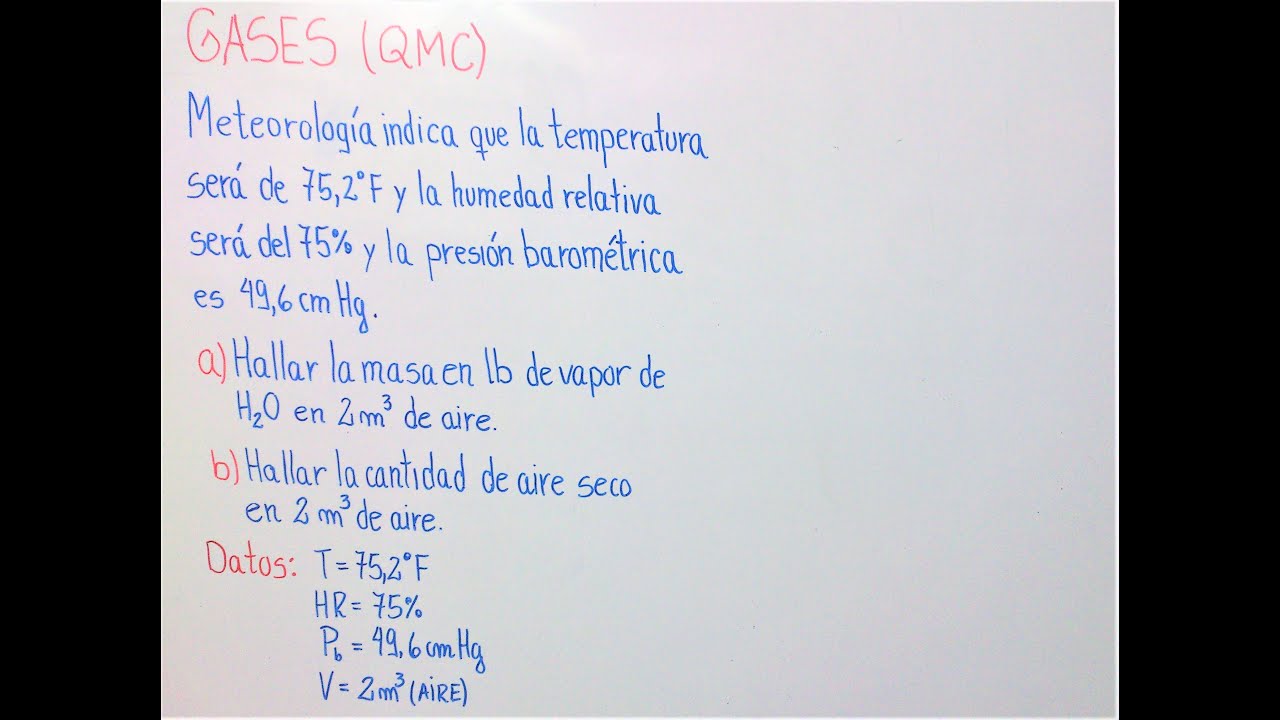 GASES (QMC)
Meteorología indica que la temperatura
será de 75,2°F y la humedad relativa
será del 75% y la presión barométrica
es 49,6 cm Hg.
a) Hallar la masa en lb de vapor de
H₂O en 2 m³ de aire.
b) Hallar la cantidad de aire seco
en 2 m³ de aire.
Datos: T = 75,2°F
HR = 75%
P_b = 49,6 cm Hg
V = 2 m³ (AiRE)